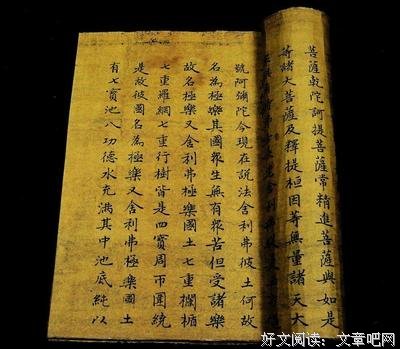 菩薩乾陀訶提菩薩常精進菩薩與如是
等諸大菩薩及釋提桓因等無量諸天大
號阿彌陀今現在說法舍利弗彼土何故
名為極樂其國眾生無有眾苦但受諸樂
故名極樂又舍利弗極樂國土七重欄楯
七重羅網七重行樹皆是四寶周帀圍繞
是故彼國名為極樂又舍利弗極樂國土
有七寶池八功德水充滿其中池底純以
好文阅读：文章吧网